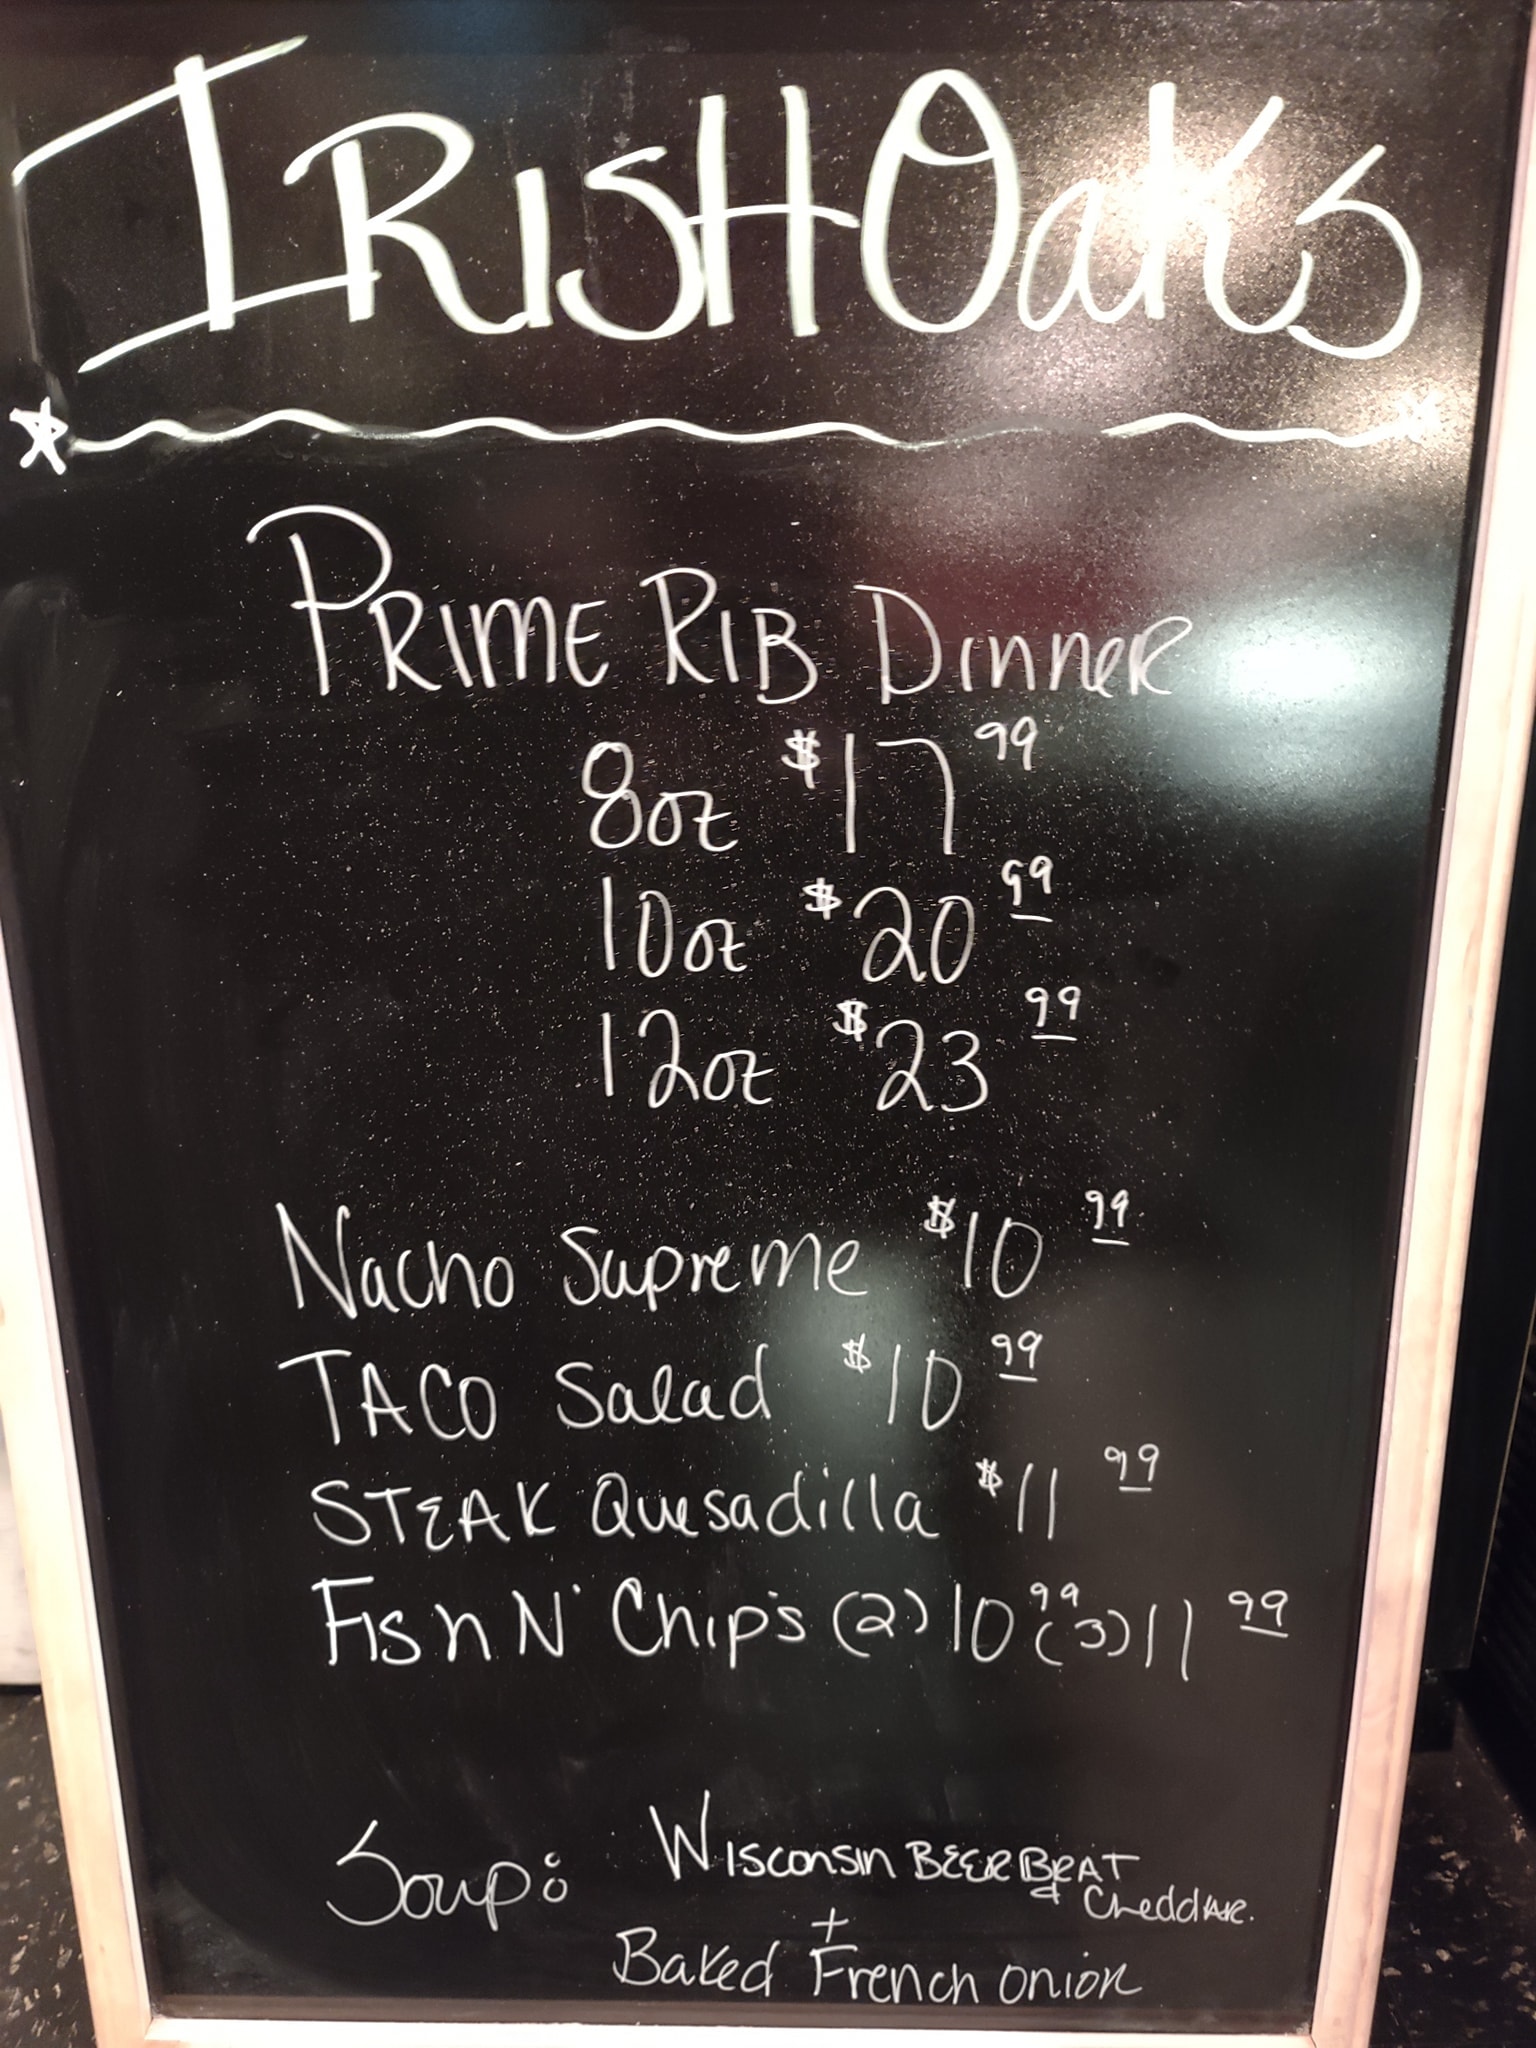 IRISH Oaks
PRIME RIB DinneR
8oz $17 99
10oz $20 99
12oz $23 99
Nacho Supreme $10 99
TACO Salad $10 99
STEAK Quesadilla $11 99
Fish N' Chip's (2) 10 99 (3) 11 99
Soup: Wisconsin BEER BRAT
& Cheddar.
+
Baked French onion